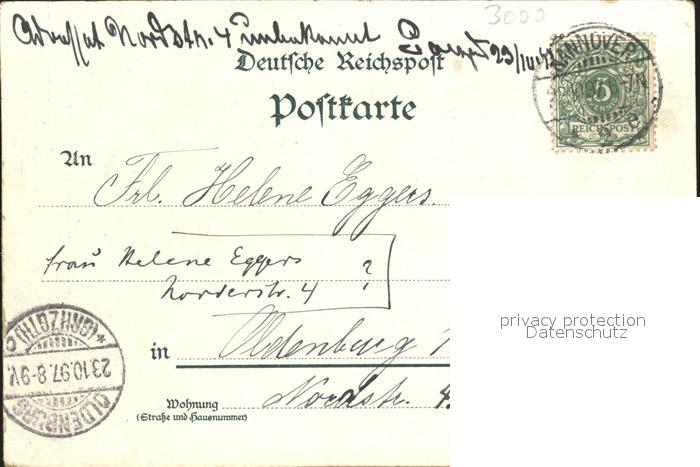 3000
Adressat Nordstr. 4 unbekannt 23/10.97
Deutsche Reichspost
Postkarte
HANNOVER
5
REICHSPOST
An
Frl. Helene Eggers.
Frau Helene Eggers
Norderstr. 4 ?
in Oldenburg
Nordstr. 4.
Wohnung
(Straße und Hausnummer)
OLDENBURG
23.10.97.8-9V.
*(GRHZGTH.)c
privacy protection
Datenschutz